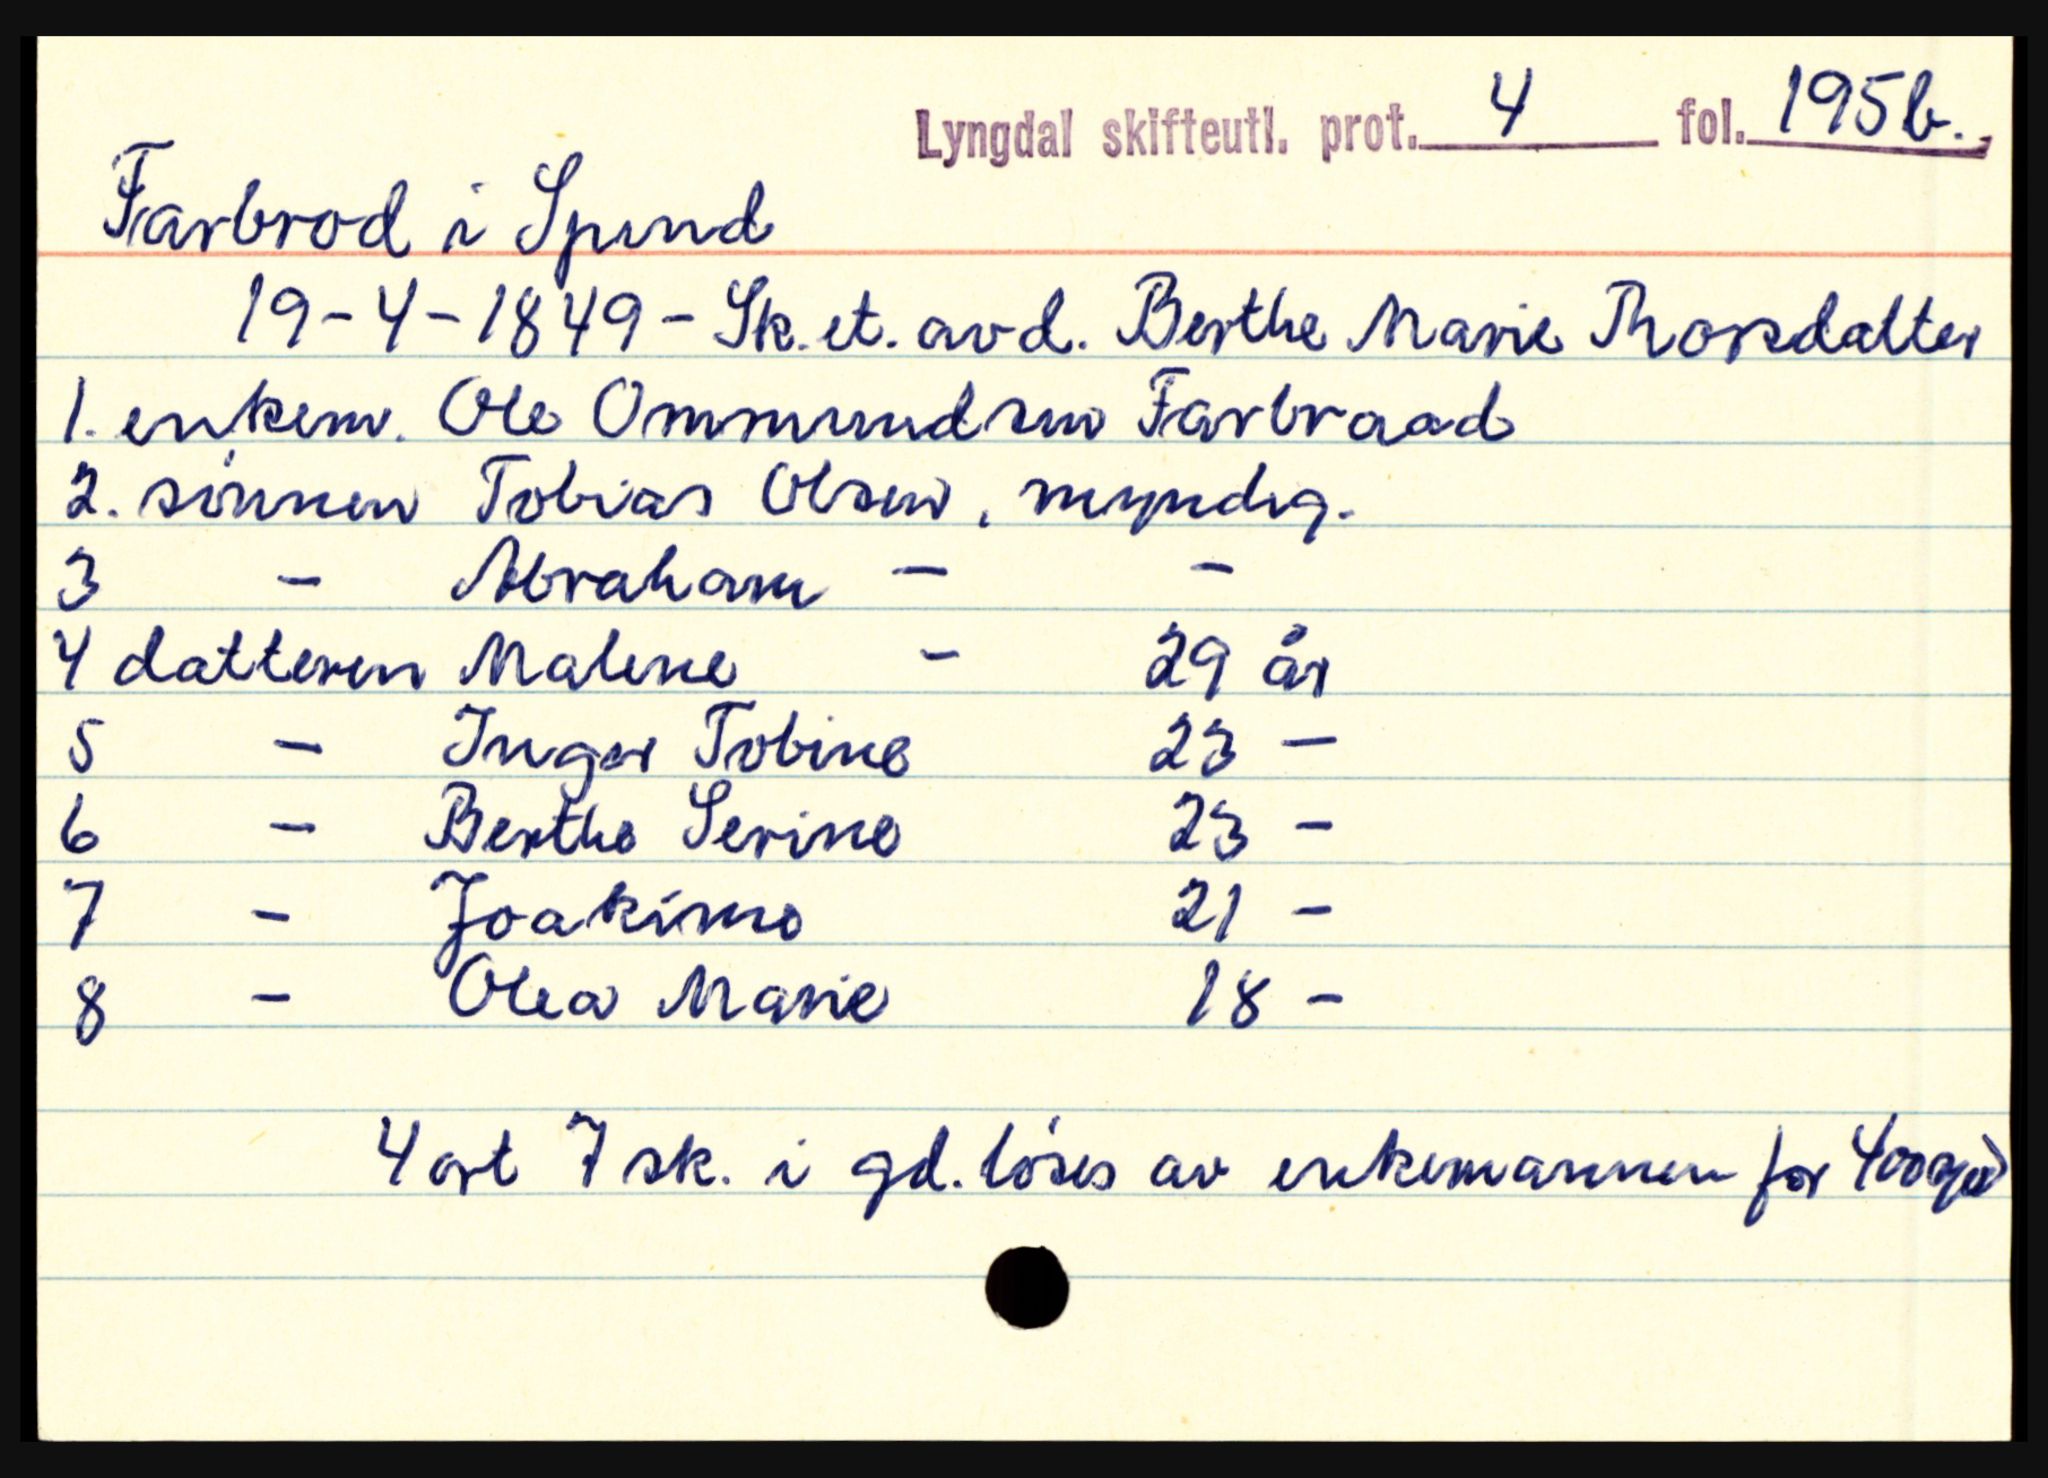 Lyngdal skifteutl. prot. 4 fol. 195b.
Farbrod i Spind
19-4-1849 - Sk. et. avd. Berthe Marie Thorsdatter
1. enkem. Ole Ommundsen Farbraad
2. sönnen Tobias Olsen, myndig.
3 - Abraham - -
4 datteren Malene - 29 år
5 - Inger Tobine 23 -
6 - Berthe Serine 23 -
7 - Joakime 21 -
8 - Olea Marie 18 -
4 ort 7 sk. i gd. löses av enkemannen for 400